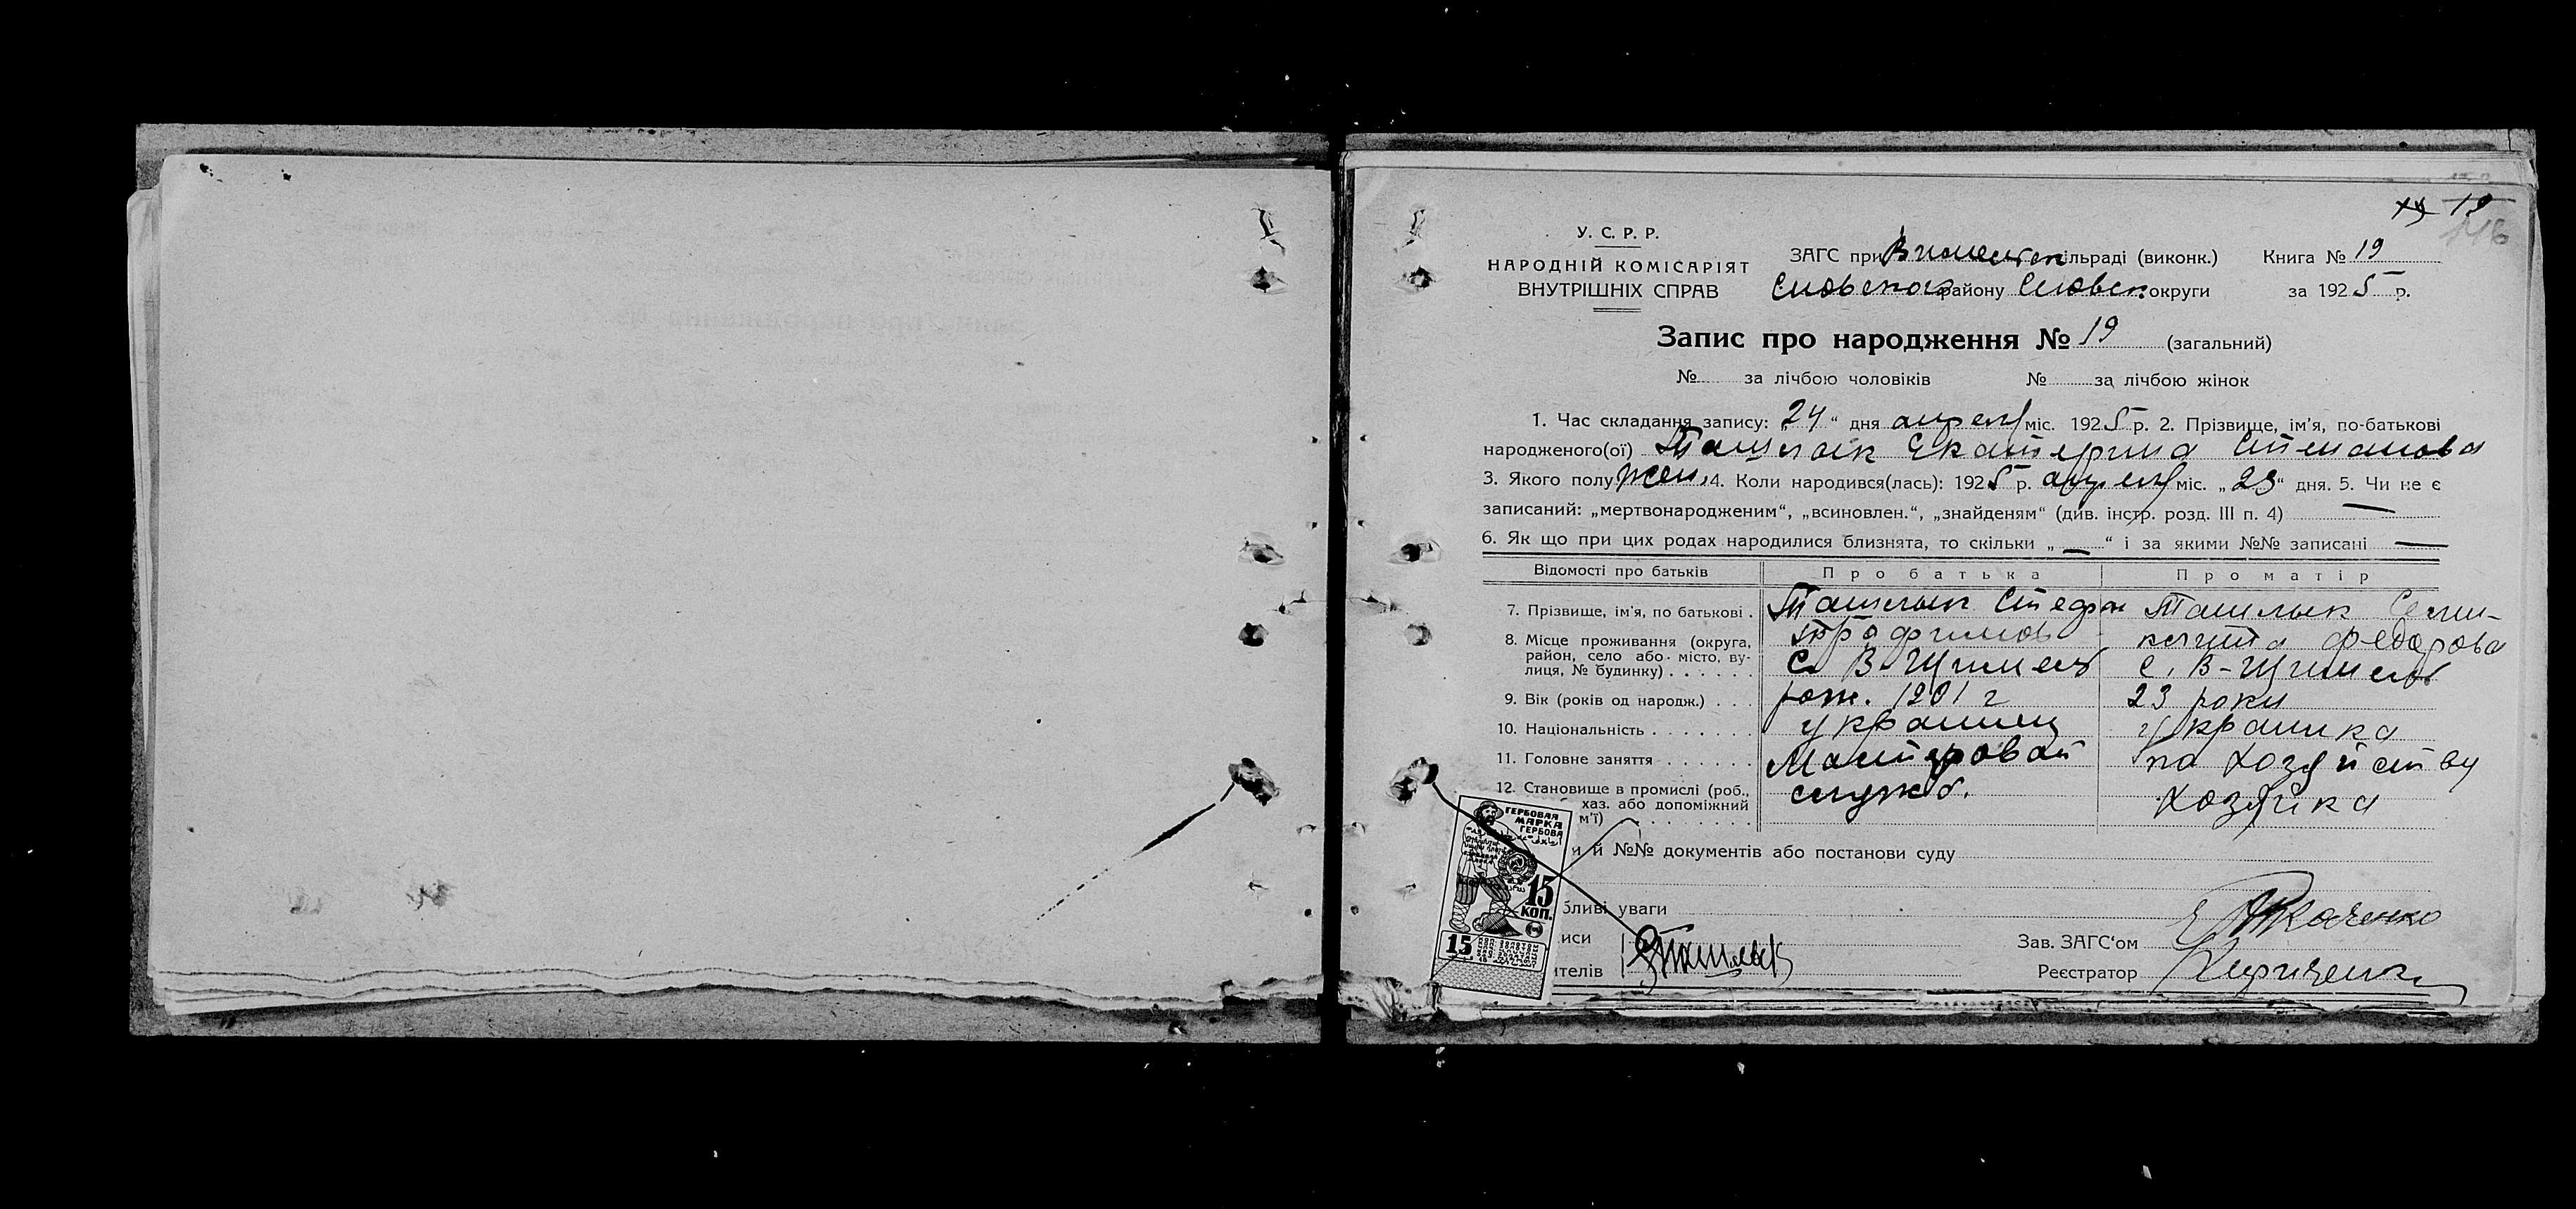 19
У. С. Р. Р.
НАРОДНІЙ КОМІСАРІЯТ
ВНУТРІШНІХ СПРАВ
ЗАГС при сільраді (виконк.) Книга № 19
району округи за 1925 р.
Запис про народження № 19 (загальний)
№ за лічбою чоловіків № за лічбою жінок
1. Час складання запису: „24“ дня апреля міс. 1925 р. 2. Прізвище, ім'я, по-батькові
народженого(ої) Ташлык Екатерина Степанова
3. Якого полу жен. 4. Коли народився(лась): 1925 р. апреля міс. „23“ дня. 5. Чи не є
записаний: „мертвонародженим“, „всиновлен.“, „знайденям“ (див. інстр. розд. III п. 4) —
6. Як що при цих родах народилися близнята, то скільки „—“ і за якими №№ записані —
Відомості про батьків Про батька Про матір
7. Прізвище, ім'я, по батькові . Ташлык Стефан Ташлык
Трофимов Федорова
8. Місце проживання (округа,
район, село або місто, ву-
лиця, № будинку) . . . . . . с. В-
9. Вік (років од народж.) . . . рож. 1901 г 23 роки
10. Національність . . . . . . . украинец украинка
11. Головне заняття . . . . . . Мастеровой по хозяйству
12. Становище в промислі (роб.,
хаз. або допоміжний
м'ї) . . . . . . . . служб. хозяйка
и й №№ документів або постанови суду
бливі уваги
иси Ташлык Зав. ЗАГС'ом Ткаченко
ителів Реєстратор Кириченко
ГЕРБОВАЯ
МАРКА
ГЕРБОВА
15
КОП.
15